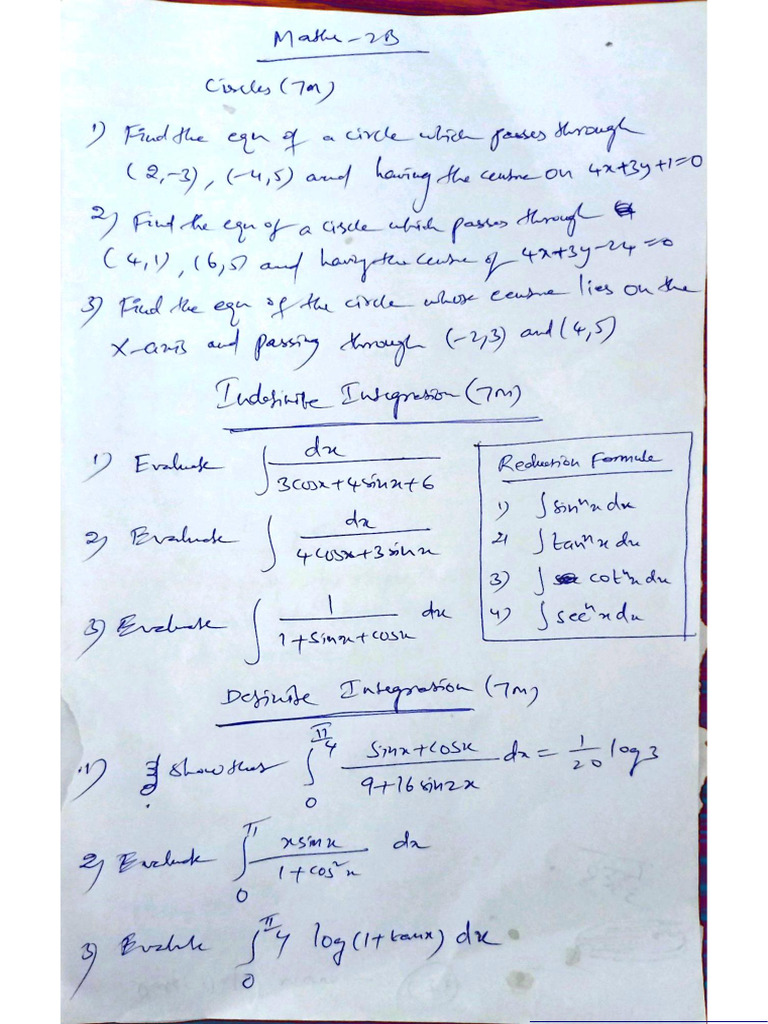 Maths-2B
Circles (7m)
1) Find the eqn of a circle which passes through
(2,-3), (-4,5) and having the centre on 4x+3y+1=0
2) Find the eqn of a circle which passes through
(4,1), (6,5) and having the centre of 4x+3y-24=0
3) Find the eqn of the circle whose centre lies on the
X-axis and passing through (-2,3) and (4,5)
Indefinite Integration (7m)
1) Evaluate ∫ dx / (3cosx+4sinx+6)
2) Evaluate ∫ dx / (4cosx+3sinx)
3) Evaluate ∫ 1 / (1+sinx+cosx) dx
Reduction Formule
1) ∫ sinⁿx dx
2) ∫ tanⁿx dx
3) ∫ cotⁿx dx
4) ∫ secⁿx dx
Definite Integration (7m)
1) Show that ∫₀^π/4 (sinx+cosx) / (9+16sin2x) dx = 1/20 log3
2) Evaluate ∫₀^π xsinx / (1+cos²x) dx
3) Evalute ∫₀^π/4 log(1+tanx) dx